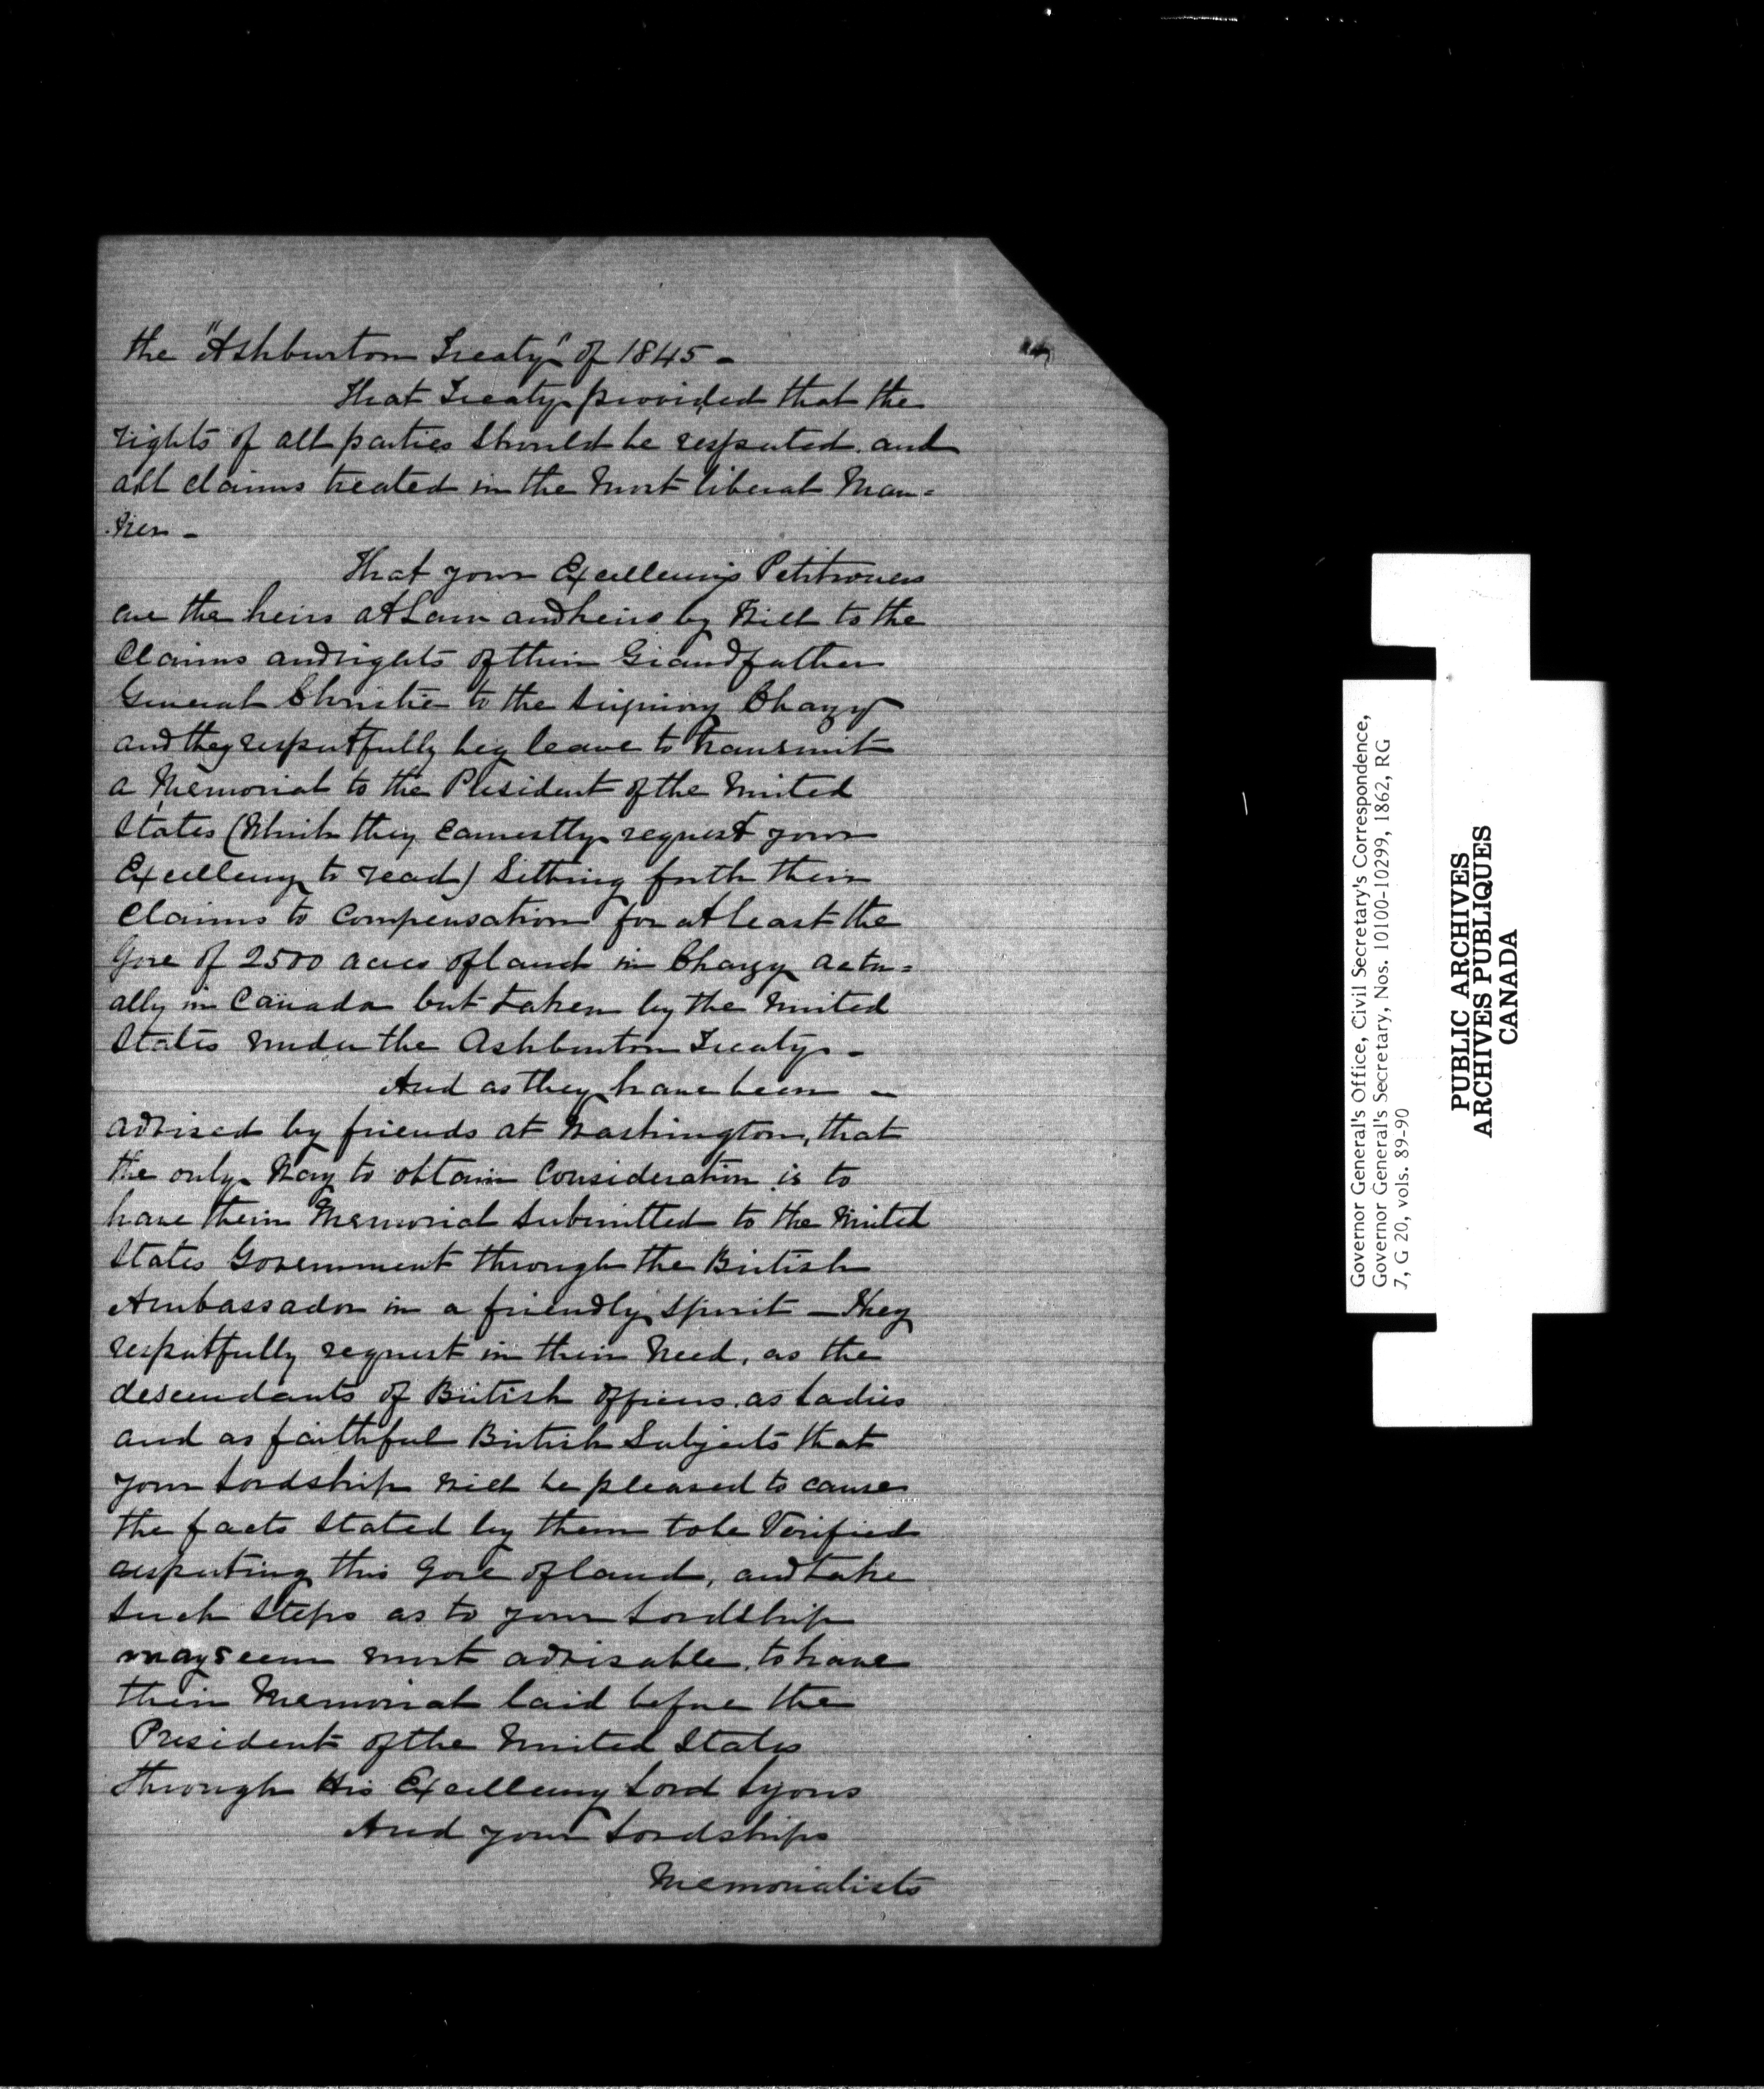 the "Ashburton Treaty" of 1845 -
That Treaty provided that the
rights of all parties should be respected. and
all claims treated in the most liberal Man=
ner -
That your Excellency's Petitioners
are the heirs at Law and heirs by Will to the
Claims and rights of their Grandfather
General Christie to the Seigniory Chazy
and they respectfully beg leave to transmit
a Memorial to the President of the United
States (Which they earnestly request your
Excellency to read) Setting forth their
Claims to Compensation for at least the
Gore of 2500 acres of land in Chazy actu=
ally in Canada but taken by the United
States under the Ashburton Treaty. -
And as they have been -
advised by friends at Washington, that
the only Way to obtain Consideration is to
have their Memorial Submitted to the United
States Government through the British
Ambassador in a friendly Spirit - They
respectfully request in their Need, as the
descendants of British Officers. as Ladies
and as faithful British Subjects that
your Lordship will be pleased to cause
the facts Stated by them to be Verified
respecting this Gore of land, and take
Such Steps as to your Lordship
may seem most advisable. to have
their Memorial laid before the
President of the United States
through His Excellency Lord Lyons
And your Lordships
Memorialists
Governor General's Office, Civil Secretary's Correspondence,
Governor General's Secretary, Nos. 10100-10299, 1862, RG
7, G 20, vols. 89-90
PUBLIC ARCHIVES
ARCHIVES PUBLIQUES
CANADA